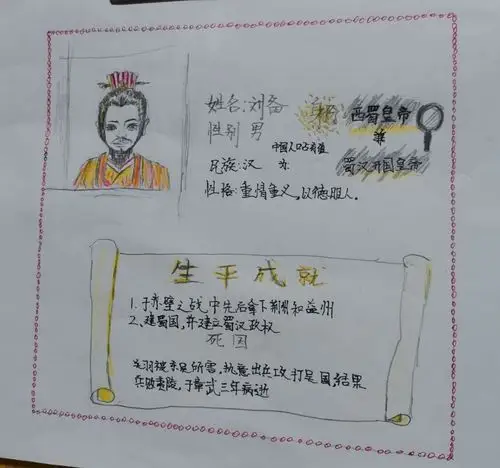 姓名:刘备
性别 男
民族:汉
性格:重情重义,以德服人。
西蜀皇帝
蜀汉开国皇帝
生平成就
1.于赤壁之战中先后拿下荆州和益州
2、建蜀国,并建立蜀汉政权
死因
关羽被东吴所害,执意出兵攻打吴国,结果
兵败夷陵,于章武三年病逝